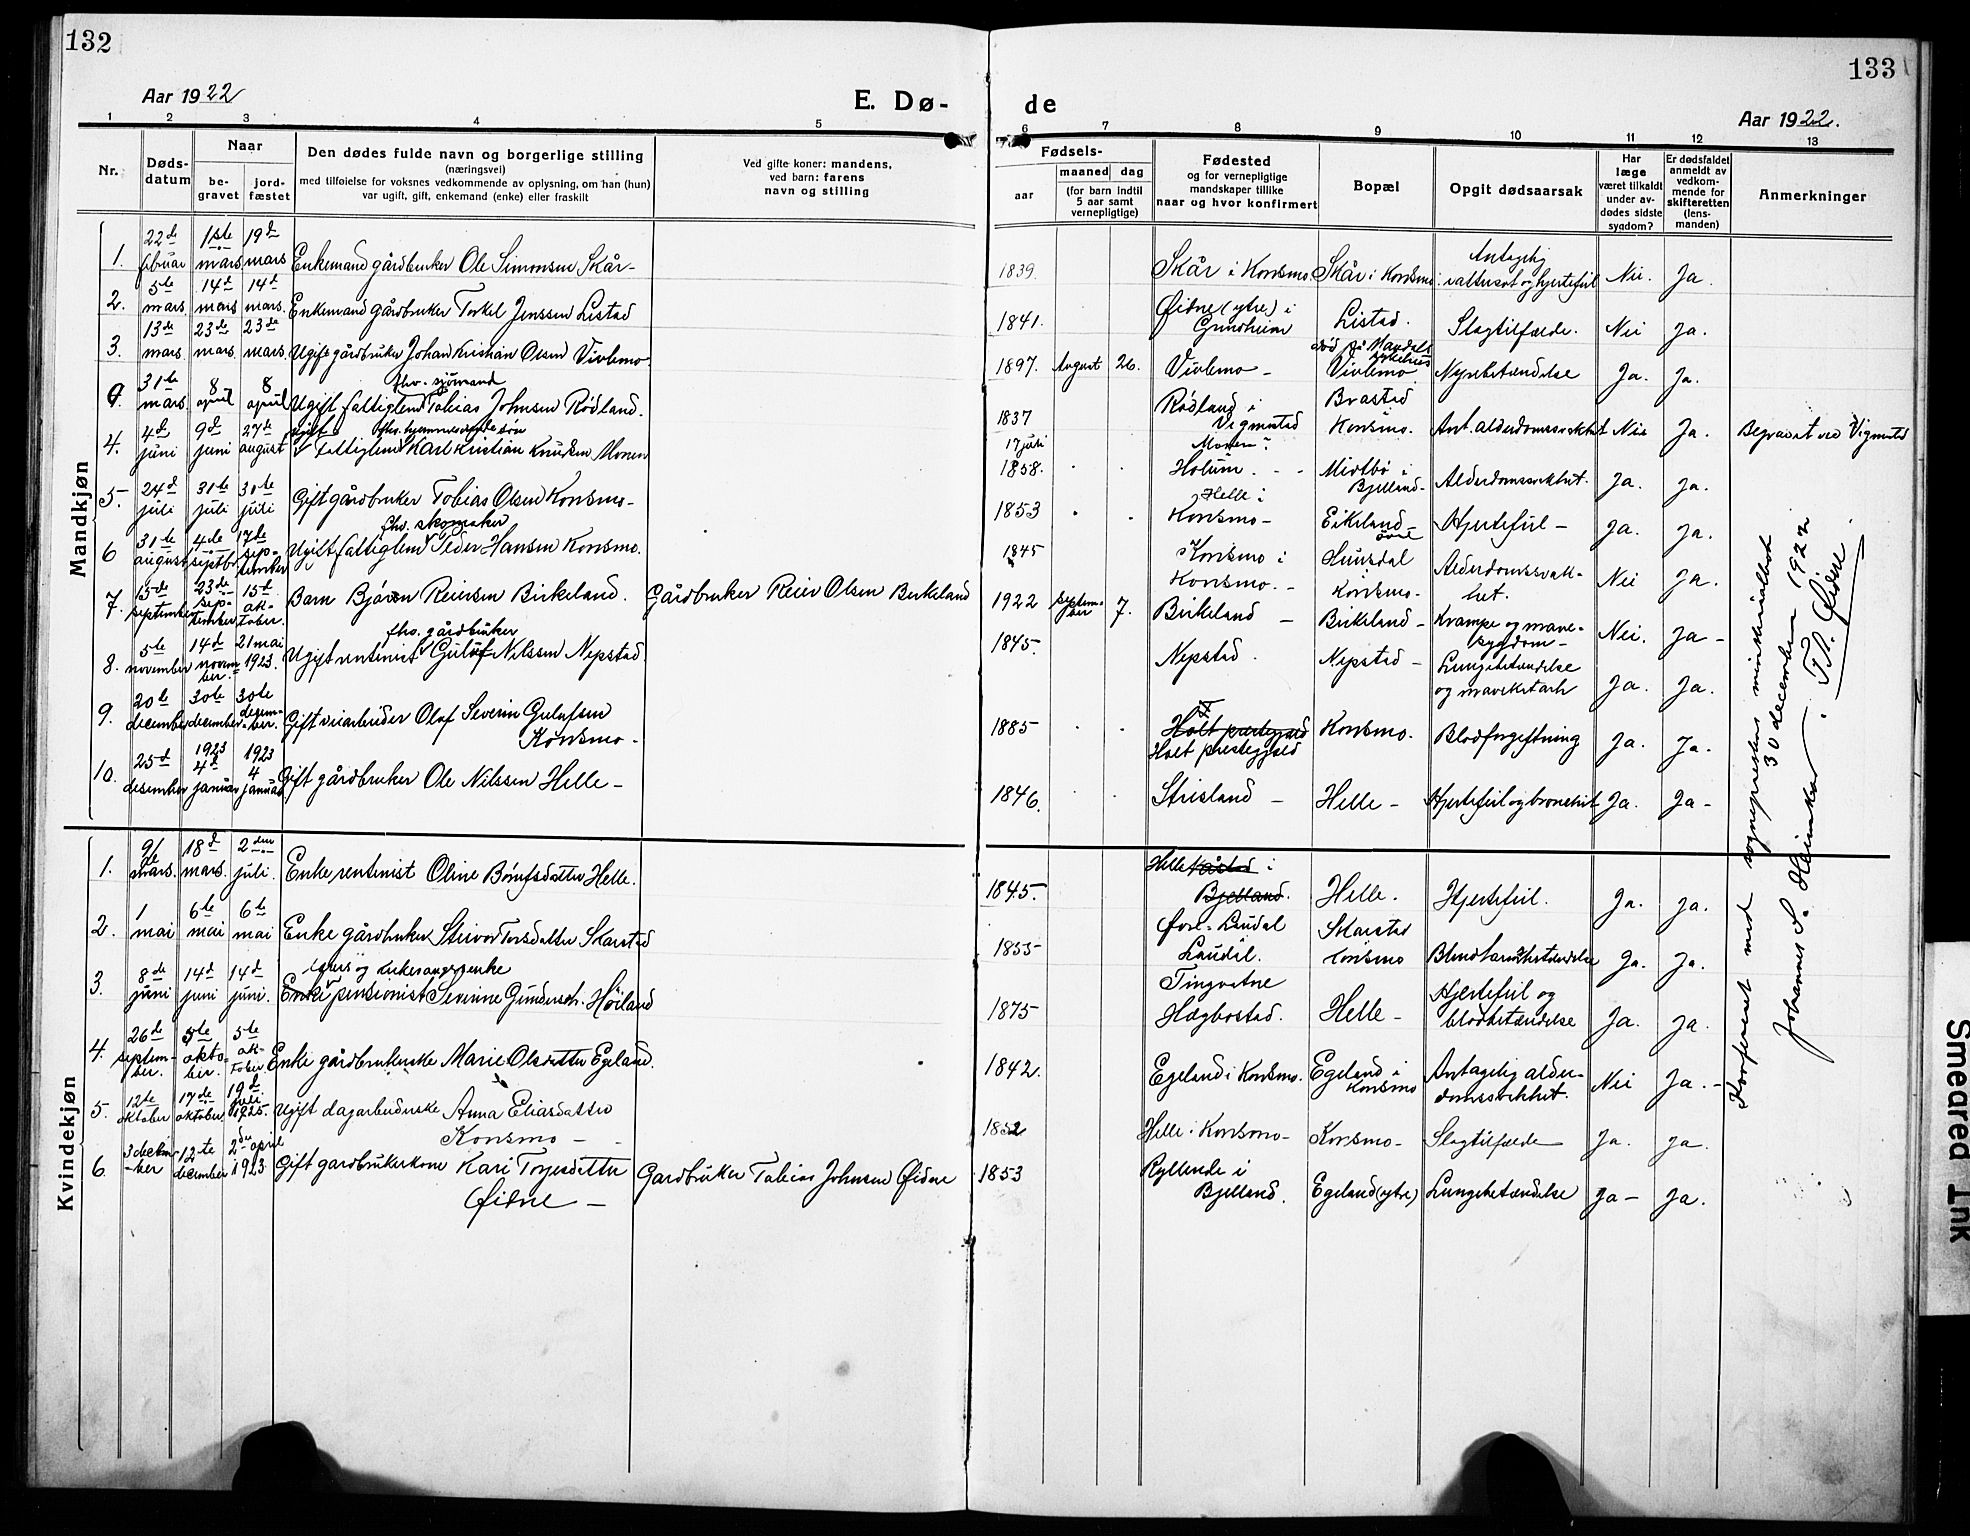 132
Aar 1922
E. Dø-
1 2 3 4 5
Nr.
Døds-
datum
Naar
be-
gravet
jord-
fæstet
Den dødes fulde navn og borgerlige stilling
(næringsvei)
med tilføielse for voksnes vedkommende av oplysning, om han (hun)
var ugift, gift, enkemand (enke) eller fraskilt
Ved gifte koner: mandens,
ved barn: farens
navn og stilling
Mandkjøn
1. 22de februar 1ste mars 19de mars Enkemand gårdbruker Ole Simonsen Skår-
2. 5te mars 14de mars 14de mars. Enkemand gårdbruker Torkel Jenssen Listad
3. 13de mars. 23de mars. 23de mars. Ugift gårdbruker Johan Kristian Olsen Vivlemo
4. 31te mars 8 april 8 april Ugift fattiglem fhv. sjømand Tobias Johnsen Rødland.
4. 4de juni 9de juni 27de august ugift Fattiglem Karl Kristian Knudsen Monen
5. 24de juli 31te juli 31te juli Gift gårdbruker Tobias Olsen Konsmo-
6 31te august 4de septbr 17de september Ugift fattiglem fhv. skomaker Peder Hansen Konsmo.
7. 15de september 23de september 15de oktober. Barn Bjørn Reiersen Birkeland. Gårdbruker Reier Olsen Birkeland
8. 5te november 14de november 21 mai 1923. Ugift rentenist fhv. gårdbruker Guluf Nilssen Nepstad.
9. 20de december 30te december 30te desember. Gift veiarbeider Olaf Severin Gulufsen
Konsmo-
10. 25de desember 1923 4de januar 1923 4 januar Gift gårdbruker Ole Nilssen Helle-
Kvindekjøn
1. 9/de mars. 18de mars. 2den juli. Enke rentenist Oline Børufsdatter Helle.
2. 1 mai 6te mai 6te mai Enke gårdbruker Steivor Torsdatter Skarstad
3. 8de juni 14de juni 14de juni. lærers og kirkesangersenke Enke pensionist Sevrinne Gundersdt. Høiland
4. 26de september. 5te oktober. 5te oktober Enke gårdbrukerske Marie Olsdatter Egeland.
5. 12te oktober 17de oktober 19de juli 1925. Ugift dagarbeiderske Anna Eliasdatter
Konsmo-
6. 3 december 12te december 2den april 1923 Gift gardbrukerkone Kari Torjesdatter Gardbruker Tobias Johnsen Øidne
Øidne -
133
de
Aar 1922.
6 7 8 9 10 11 12 13
Fødsels-
aar
maaned dag
(for barn indtil
5 aar samt
vernepligtige)
Fødested
og for vernepligtige
mandskaper tillike
naar og hvor konfirmert
Bopæl
Opgit dødsaarsak
Har
læge
været tilkaldt
under av-
dødes sidste
sygdom?
Er dødsfaldet
anmeldt av
vedkom-
mende for
skifteretten
(lens-
manden)
Anmerkninger
1839. Skår i Konsmo Skår i Konsmo Antagelig vattersot og hjertefeil Nei. Ja.
1841. Øidne (ytre) i Grindheim Listad. Slagtilfælde. Nei Ja.
1897. August 26. Vivlemo - død på Mandals sykehus Vivlemo Nyrebetændelse Ja. Ja.
1837 Rødland i Vigmostad Brastad Konsmo. Ant. alderdomssvekket Nei Ja. Begravet ved Vigmostad
17 juli 1858. Monen? Holum. - - Midtbø i Bjelland- Alderdomssvekket. Ja. Ja.
1853 Helle i Konsmo- Eikeland øvre Hjertefeil - Ja. Ja.
1845 Konsmo i Konsmo. - Suusdal Konsmo- Alderdomssvak-
het. Nei Ja.
1922 september 7. Birkeland - Birkeland - Krampe og mave-
sygdom- Nei. Ja -
1845. Nepstad. Nepstad - Lungebetændelse
og mavekatarh Ja. Ja.
1885 Holt prestegjeld
Holt prestegjeld Konsmo. Blodforgiftning Ja. Ja.
1846. Strisland - Helle - Hjertefeil og bronchit Ja. Ja-
1845. Helle i
Bjelland. Helle. Hjertefeil. Ja. Ja.
1855 Øvre-Laudal
Laudal. Skarstad
Konsmo Blindtarmbetændelse Ja. Ja.
1875 Tingvatne
Hægbostad. Helle - Hjertefeil og
blodbetændelse Ja. Ja.
1842. Egeland i Konsmo. Egeland i
Konsmo Antagelig alder-
domssvekket. Nei Ja. -
1852 Helle i Konsmo- Konsmo- Slagtilfælde Ja. Ja.
1853 Ryllende i
Bjelland. Egeland (ytre) Lungebetændelse Ja- Ja.
Konfereret med sogneprestens ministerialbok
30 december 1922
Johannes S. Heimker. T.A. Øidne
Smeared Ink